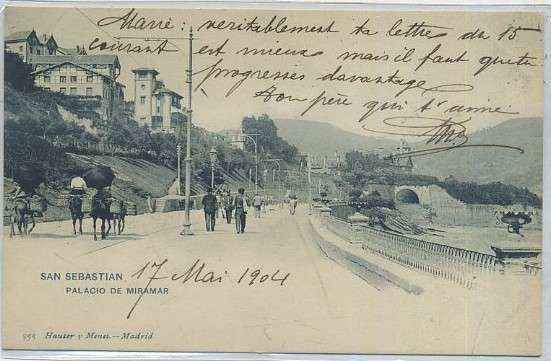 Marie: veritablement ta lettre du 15
courant est mieux mais il faut que tu
progresses davantage
Ton père qui t'aime
SAN SEBASTIAN
17 Mai 1904
PALACIO DE MIRAMAR
Hauser y Menet.-Madrid